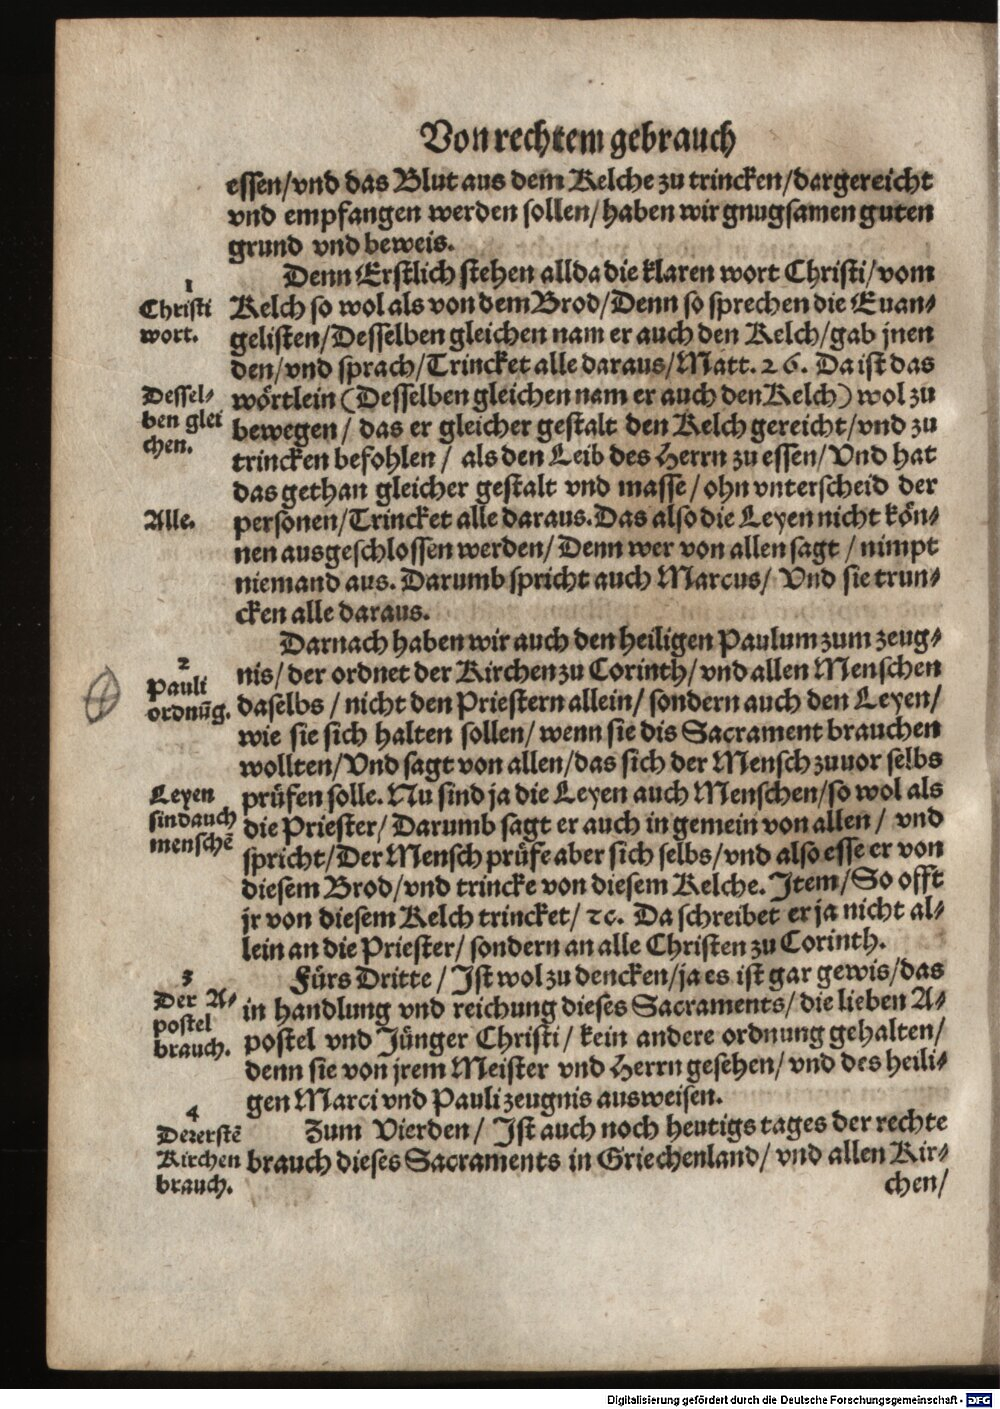 Von rechtem gebrauch
essen/vnd das Blut aus dem Kelche zu trincken/dargereicht
vnd empfangen werden sollen/haben wir gnugsamen guten
grund vnd beweis.
1
Christi
wort.
Denn Erstlich stehen allda die klaren wort Christi/vom
Kelch so wol als von dem Brod/Denn so sprechen die Euan-
gelisten/Desselben gleichen nam er auch den Kelch/gab jnen
den/vnd sprach/Trincket alle daraus/Matt. 26. Da ist das
Dessel-
ben glei
chen.
wörtlein (Desselben gleichen nam er auch den Kelch) wol zu
bewegen/ das er gleicher gestalt den Kelch gereicht/vnd zu
trincken befohlen/ als den Leib des Herrn zu essen/Vnd hat
das gethan gleicher gestalt vnd masse/ohn vnterscheid der
Alle.
personen/Trincket alle daraus. Das also die Leyen nicht kön-
nen ausgeschlossen werden/Denn wer von allen sagt/nimpt
niemand aus. Darumb spricht auch Marcus/ Vnd sie trun-
cken alle daraus.
2
Pauli
ordnūg.
Darnach haben wir auch den heiligen Paulum zum zeug-
nis/der ordnet der Kirchen zu Corinth/vnd allen Menschen
daselbs/nicht den Priestern allein/sondern auch den Leyen/
wie sie sich halten sollen/wenn sie dis Sacrament brauchen
wollten/Vnd sagt von allen/das sich der Mensch zuuor selbs
Leyen
sind auch
menschē
prüfen solle. Nu sind ja die Leyen auch Menschen/so wol als
die Priester/Darumb sagt er auch in gemein von allen/ vnd
spricht/Der Mensch prüfe aber sich selbs/vnd also esse er von
diesem Brod/vnd trincke von diesem Kelche. Item/So offt
jr von diesem Kelch trincket/ ꝛc. Da schreibet er ja nicht al-
lein an die Priester/sondern an alle Christen zu Corinth.
3
Der A-
postel
brauch.
Fürs Dritte/Ist wol zu dencken/ja es ist gar gewis/das
in handlung vnd reichung dieses Sacraments/die lieben A-
postel vnd Jünger Christi/kein andere ordnung gehalten/
denn sie von jrem Meister vnd Herrn gesehen/vnd des heili-
gen Marci vnd Pauli zeugnis ausweisen.
4
Der erstē
Kirchen
brauch.
Zum Vierden/ Ist auch noch heutigs tages der rechte
brauch dieses Sacraments in Griechenland/vnd allen Kir-
chen/
Digitalisierung gefördert durch die Deutsche Forschungsgemeinschaft - DFG